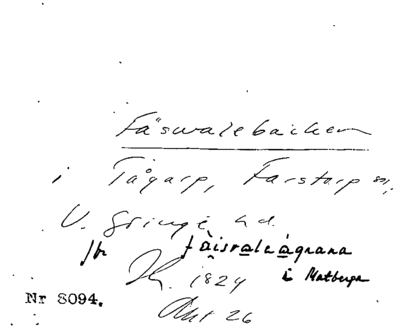 Fäsvalebacken
i Tågarp, Farstorp sn,
V. Göinge hd.
jfr fàisvaleágnana
i Matberga
1824
Akt 26
Nr 8094.